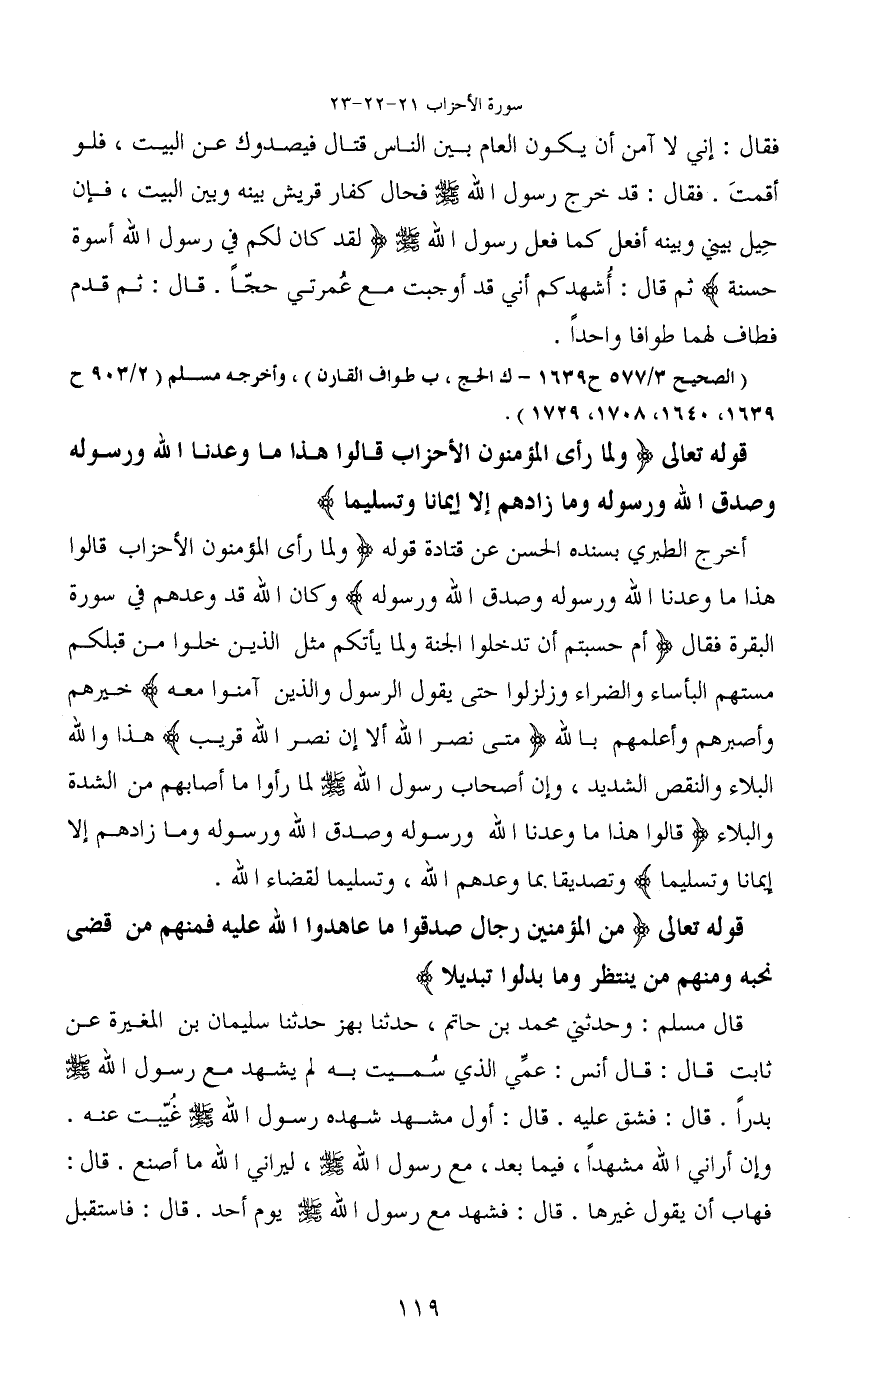 سورة الأحزاب ٢١-٢٢-٢٣
فقال : إني لا آمن أن يكون العام بين الناس قتال فيصدوك عن البيت ، فلو
أقمتَ . فقال : قد خرج رسول الله ﷺ فحال كفار قريش بينه وبين البيت ، فإن
حِيل بيني وبينه أفعل كما فعل رسول الله ﷺ ﴿ لقد كان لكم في رسول الله أسوة
حسنة ﴾ ثم قال : أُشهدكم أني قد أوجبت مع عُمرتي حجّاً . قال : ثم قدم
فطاف لهما طوافا واحداً .
( الصحيح ٥٧٧/٣ ح١٦٣٩ – ك الحج ، ب طواف القارن ) ، وأخرجه مسلم ( ٩٠٣/٢ ح
١٦٣٩، ١٦٤٠، ١٧٠٨، ١٧٢٩ ) .
قوله تعالى ﴿ ولما رأى المؤمنون الأحزاب قالوا هذا ما وعدنا الله ورسوله
وصدق الله ورسوله وما زادهم إلا إيمانا وتسليما ﴾
أخرج الطبري بسنده الحسن عن قتادة قوله ﴿ ولما رأى المؤمنون الأحزاب قالوا
هذا ما وعدنا الله ورسوله وصدق الله ورسوله ﴾ وكان الله قد وعدهم في سورة
البقرة فقال ﴿ أم حسبتم أن تدخلوا الجنة ولما يأتكم مثل الذين خلوا من قبلكم
مستهم البأساء والضراء وزلزلوا حتى يقول الرسول والذين آمنوا معه ﴾ خيرهم
وأصبرهم وأعلمهم بالله ﴿ متى نصر الله ألا إن نصر الله قريب ﴾ هذا والله
البلاء والنقص الشديد ، وإن أصحاب رسول الله ﷺ لما رأوا ما أصابهم من الشدة
والبلاء ﴿ قالوا هذا ما وعدنا الله ورسوله وصدق الله ورسوله وما زادهم إلا
إيمانا وتسليما ﴾ وتصديقا بما وعدهم الله ، وتسليما لقضاء الله .
قوله تعالى ﴿ من المؤمنين رجال صدقوا ما عاهدوا الله عليه فمنهم من قضى
نحبه ومنهم من ينتظر وما بدلوا تبديلا ﴾
قال مسلم : وحدثني محمد بن حاتم ، حدثنا بهز حدثنا سليمان بن المغيرة عن
ثابت قال : قال أنس : عمِّي الذي سُميت به لم يشهد مع رسول الله ﷺ
بدراً . قال : فشق عليه . قال : أول مشهد شهده رسول الله ﷺ غُيّبت عنه .
وإن أراني الله مشهداً ، فيما بعد ، مع رسول الله ﷺ ، ليراني الله ما أصنع . قال :
فهاب أن يقول غيرها . قال : فشهد مع رسول الله ﷺ يوم أحد . قال : فاستقبل
١١٩